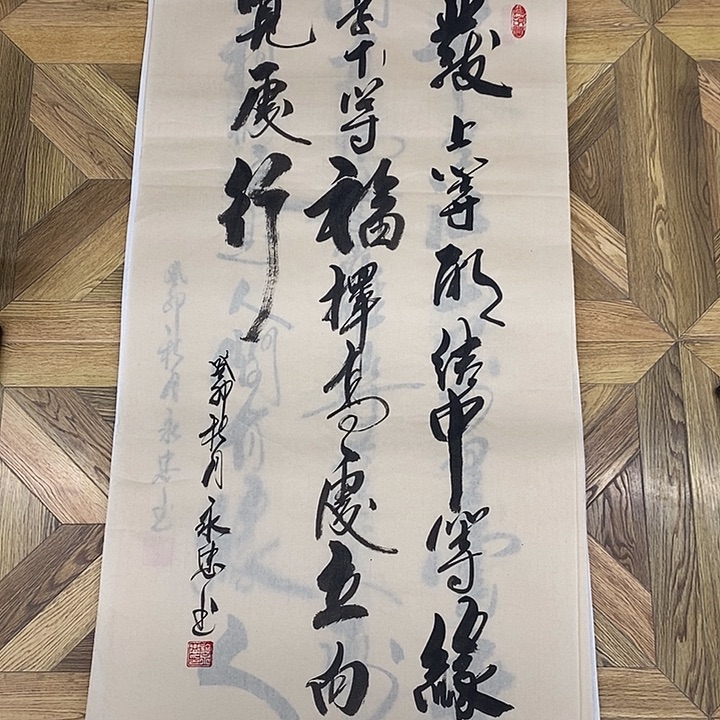 發上等願結中等緣
享下等福擇高處立向
寬處行
癸卯秋月永忠书